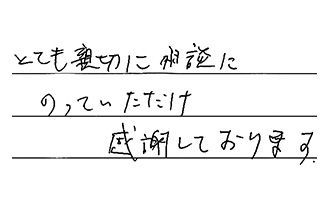 とても親切に相談に
のっていただけ
感謝しております.